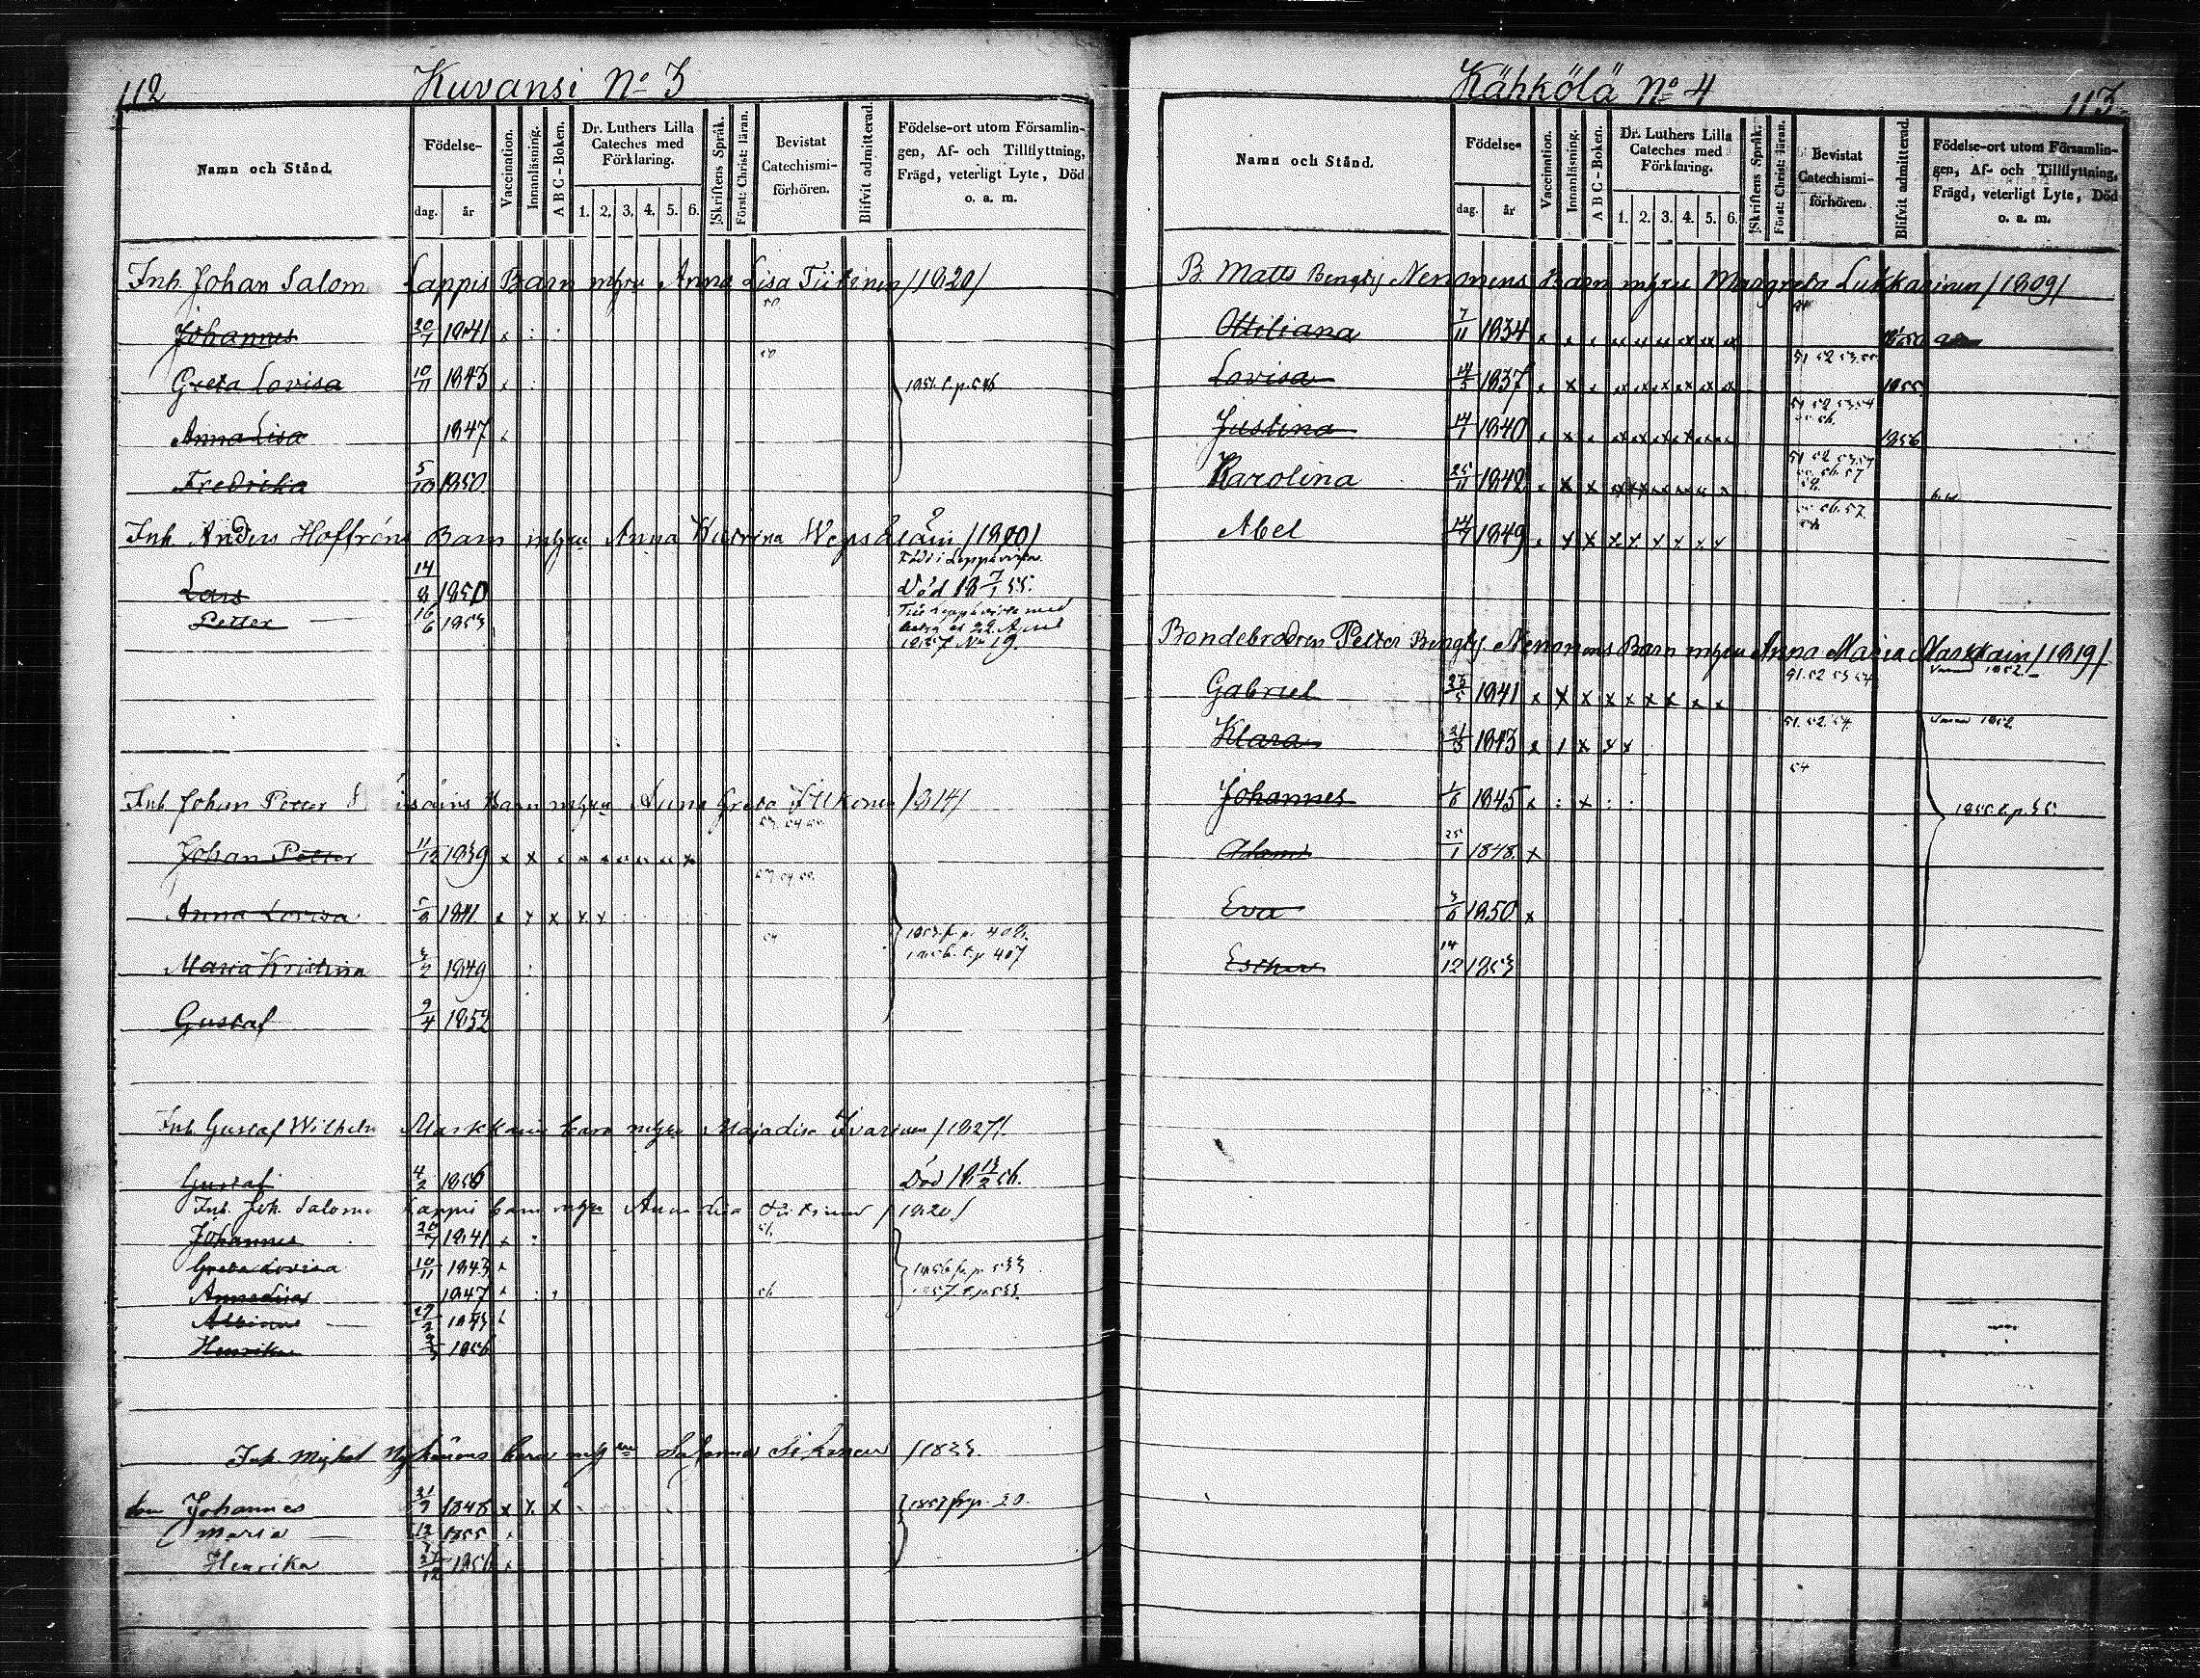 112 Kuvansi No 3
Namn och Stånd. Födelse- dag. år Vaccination. Innanläsning. A B C-Boken. Dr. Luthers Lilla Cateches med Förklaring. 1. 2. 3. 4. 5. 6. Skriftens Språk. Först: Christ: läran. Bevistat Catechismi-förhören. Blifvit admitterad. Födelse-ort utom Församlingen, Af- och Tillflyttning, Frägd, veterligt Lyte, Död o. a. m.
Inh. Johan Salom Lappis Barn m hru Anna Lisa Tiikinen /1820/
Johannes 20/7 1841 50
Greta Lovisa 10/11 1843 50 1851 t. p. 546
Anna Lisa 1847
Fredrika 5/10 1850
Inh. Anders Hoffréns Barn m hru Anna Katrina /1800/
Född i Leppävirta
Lars 14/8 1850 Död 18 7/1 55.
Petter 16/6 1853 Till Leppävirta med
22 April
1857 No 19.
Inh. Johan Petter Barn m hru Anna Greta /1814/
Johan Petter 11/12 1839 53. 54 55
Anna Lovisa 5/8 1841 53. 54. 55.
Maria Kristina 3/2 1849 54 1853. fr. p. 402.
1856. t. p. 407
Gustaf 9/4 1852
Inh. Gustaf Wilhelm Markkain barn m hru Majadisa Ivarinen /1827/.
Gustaf 4/2 1856 Död 18 13/2 56.
Inh. Joh. Salom Lappis barn m hru Anna Lisa Tiikinen /1820/
Johannes 20/7 1841 51.
Greta Lovisa 10/11 1843 1856 fr. p. 533
Annalisa 1847 56 1857 t. p. 533.
Albina
Henrika 1856
Inh. Mickel barn m hru /1833.
Johannes 21/9 1848 1857 fr p. 20.
Maria 1855
Henrika 27/12 1856
Kähkölä No 4 113.
Namn och Stånd. Födelse- dag. år Vaccination. Innanläsning. A B C-Boken. Dr. Luthers Lilla Cateches med Förklaring. 1. 2. 3. 4. 5. 6. Skriftens Språk. Först: Christ: läran. Bevistat Catechismi-förhören. Blifvit admitterad. Födelse-ort utom Församlingen, Af- och Tillflyttning, Frägd, veterligt Lyte, Död o. a. m.
B. Matts Bengtsj Nenonens Barn m hru Margreta Lukkarinen /1809/
Ottiliana 7/11 1834
Lovisa 14/5 1837 51 52 53 55 1855
Justina 14/7 1840 51 52 53 54 55 56. 1856
Karolina 25/11 1842 51 52 53 54 55. 56. 57
Abel 14/7 1849 55 56. 57.
Bondebrodren Petter Bengtsj. Nenonens Barn m hru Anna Maria Markkain /1819/
Gabriel 23/5 1841 51. 52 53 54 1852.
Klara 21/3 1843 51. 52. 54. 1852
Johannes 1/6 1845 54 1855. t. p. 35.
Adam 25/1 1848.
Eva 3/6 1850
Esther 14/12 1853